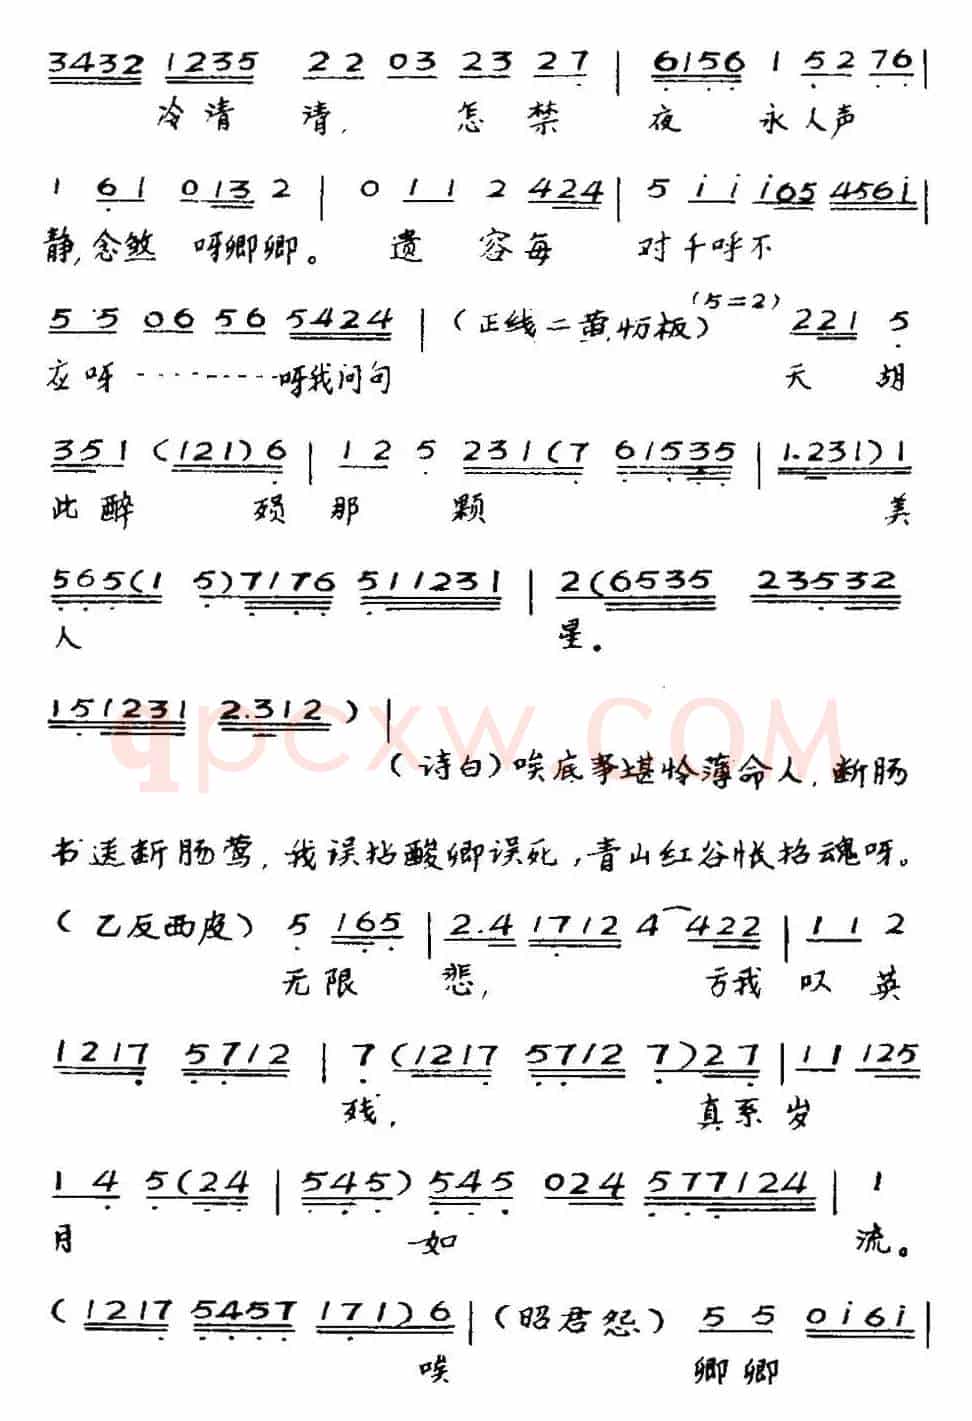 3432 1235 22 03 23 27 | 6156 1 52 76 |
冷清清, 怎禁夜永人声
1 61 0132 | 0 11 2 424 | 5 i i i65 456i |
静,念煞呀卿卿。遗容每对千呼不
55 06 56 5424 | (正线二黄,切板) (5=2) 221 5
应呀--------呀我问句天胡
351 (121) 6 | 12 5 231 (7 61535 | 1.231) 1
此醉殒那颗美
565 (1 5) 7176 511231 | 2 (6535 23532
人星。
151231 2.312 ) |
qpcxw.COM
(诗白) 唉底事堪怜薄命人,断肠
书送断肠莺,我误拈酸卿误死,青山红谷怅招魂呀。
(乙反西皮) 5 165 | 2.4 1712 4 422 | 11 2
无限悲, 亏我叹英
1217 5712 | 7 (1217 5712 7) 27 | 11 125
残, 真系岁
14 5 (24 | 545) 545 024 577124 | 1
月一如流。
(1217 5457 171) 6 | (昭君怨) 55 0i6i |
唉卿卿